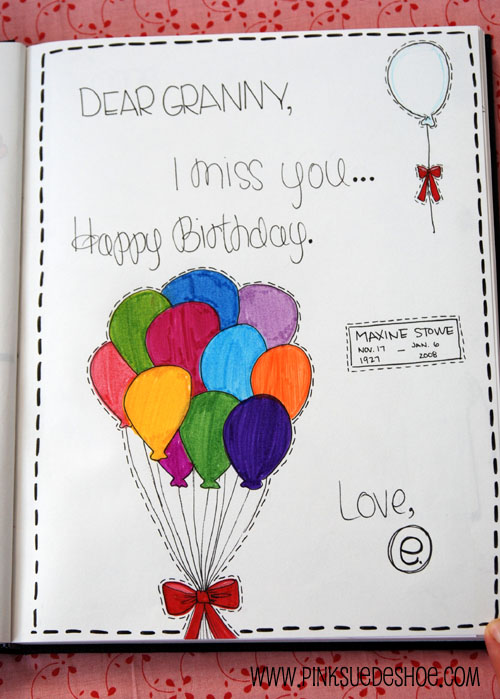 DEAR GRANNY,
I miss you...
Happy Birthday.
MAXINE STOWE
NOV. 17 — JAN. 6
1927 2008
Love,
e.
WWW.PINKSUEDESHOE.COM